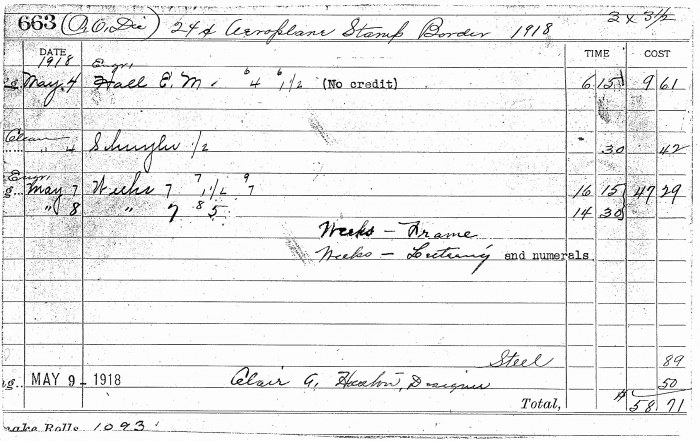 663 (P.O. Die) 24¢ Aeroplane Stamp Border 1918 2 x 3½
DATE TIME COST
1918 Engr.
g. May 4 Hall E. M. 6 4 6 1½ (No credit) 6 15 9 61
Clean
" 4 Schuyler ½ 30 42
Engr.
g... May 7 Weeks 7 7 1½ 9 7 16 15 47 29
" 8 " 7 8 5 14 30
Weeks — Frame
Weeks — Lettering and numerals.
Steel 89
g.. MAY 9 - 1918 Clair A. Huston, Designer 50
Total, 58 71
ake Rolls 1093